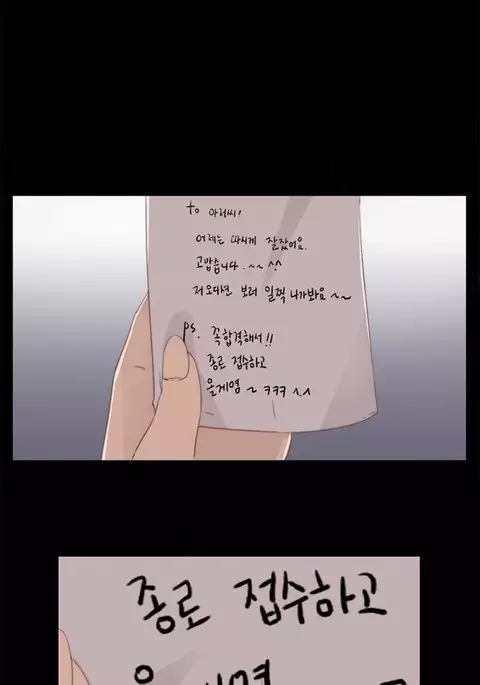 to 아저씨!
어제는 따시게 잘잤어요.
고맙습니다. ~~ ^.^
저 오디션 보러 일찍 나가봐요 ~~
ps. 꼭합격해서!!
종로 접수하고
올게염 ~ ㅋㅋㅋ ^.^
종로 접수하고